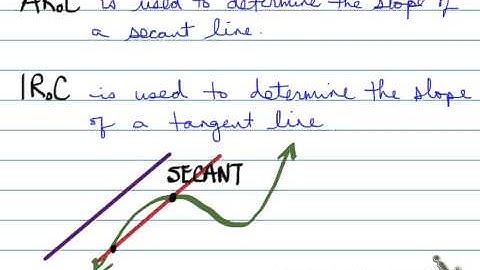 ARoC is used to determine the slope of
a secant line.
IRoC is used to determine the slope
of a tangent line
SECANT